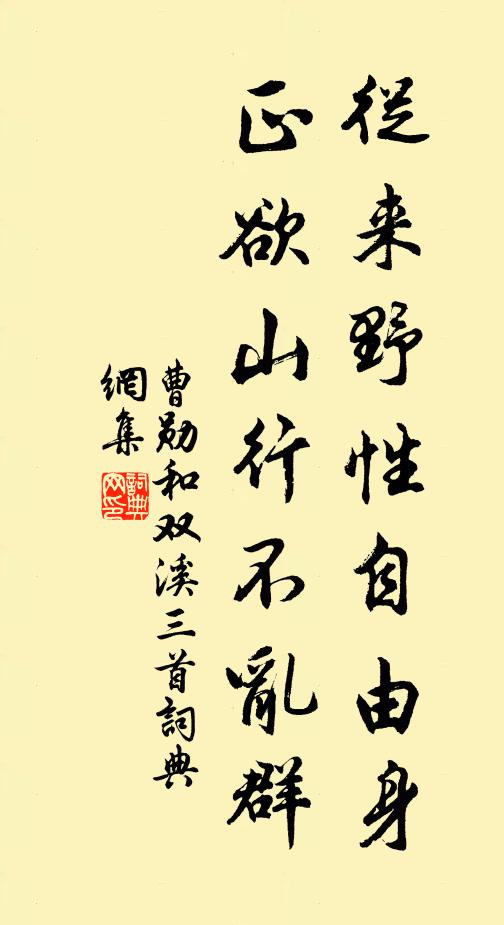 從来野性自由身
正欲山行不亂群
曹勋和双溪三首詞典
網集
詞典
网印